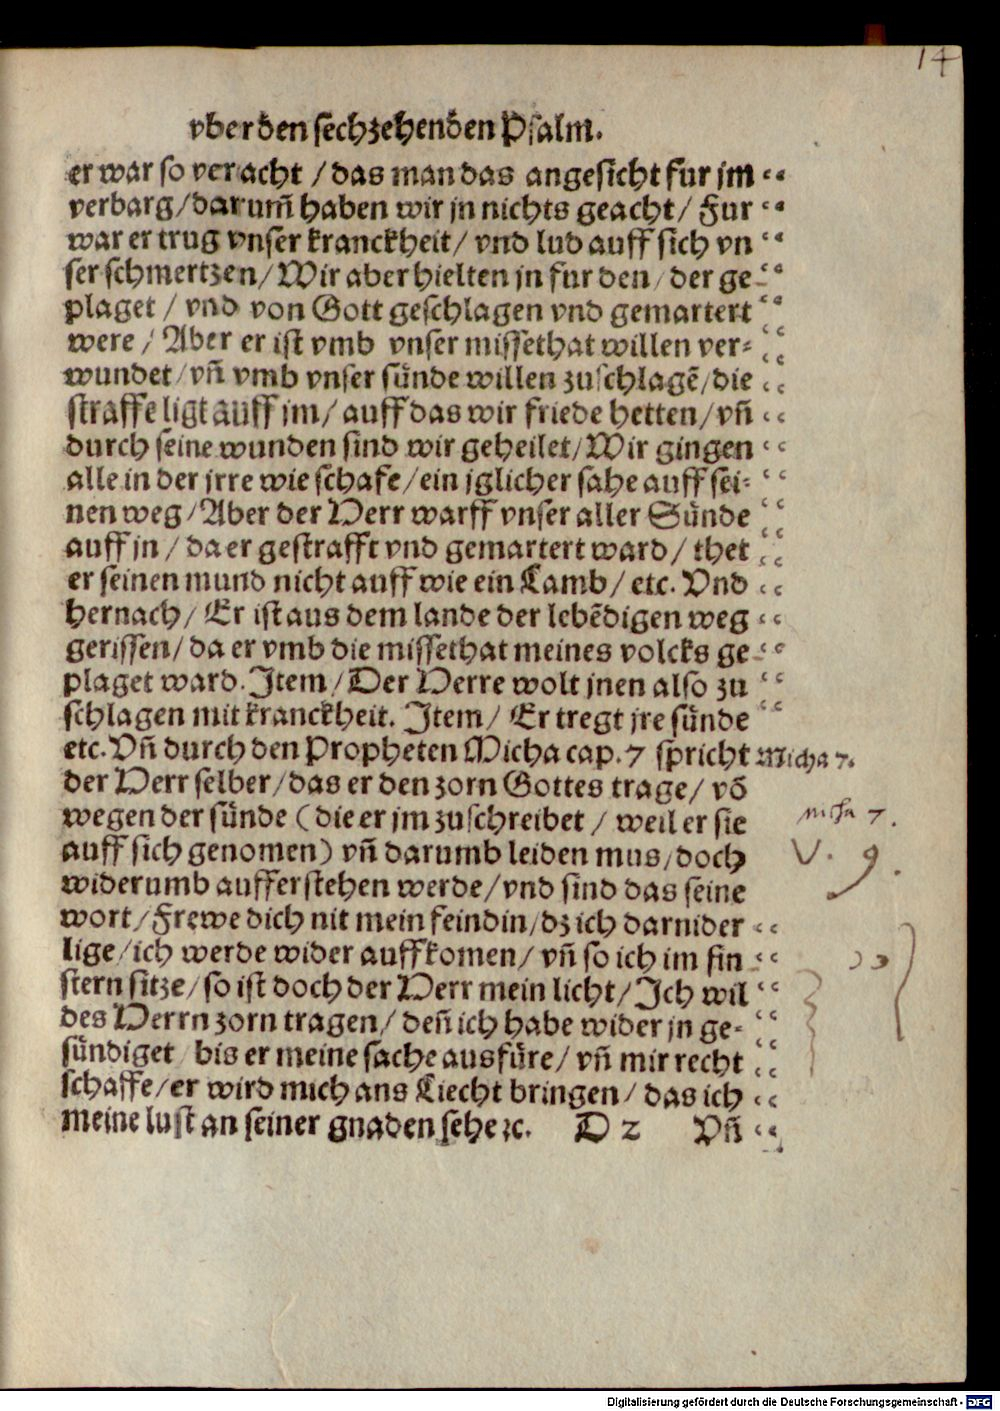 14
vber den sechzehenden Psalm.
er war so veracht / das man das angesicht fur jm
verbarg / darum̃ haben wir jn nichts geacht / Fur
war er trug vnser kranckheit / vnd lud auff sich vn
ser schmertzen / Wir aber hielten jn fur den / der ge-
plaget / vnd von Gott geschlagen vnd gemartert
were / Aber er ist vmb vnser missethat willen ver-
wundet / vñ vmb vnser sünde willen zuschlagẽ / die
straffe ligt auff jm / auff das wir friede hetten / vñ
durch seine wunden sind wir geheilet / Wir gingen
alle in der jrre wie schafe / ein jglicher sahe auff sei-
nen weg / Aber der Herr warff vnser aller Sünde
auff jn / da er gestrafft vnd gemartert ward / thet
er seinen mund nicht auff wie ein Lamb / etc. Vnd
hernach / Er ist aus dem lande der lebẽdigen weg
gerissen / da er vmb die missethat meines volcks ge-
plaget ward. Item / Der Herre wolt jnen also zu
schlagen mit kranckheit. Item / Er tregt jre sünde
etc. Vñ durch den Propheten Micha cap. 7 spricht Micha 7.
der Herr selber / das er den zorn Gottes trage / võ
wegen der sünde (die er jm zuschreibet / weil er sie
micha 7.
auff sich genomen) vñ darumb leiden mus / doch
V. 9.
widerumb aufferstehen werde / vnd sind das seine
wort / Frewe dich nit mein feindin / dz ich darnider
lige / ich werde wider auffkomen / vñ so ich im fin
stern sitze / so ist doch der Herr mein licht / Ich wil
des Herrn zorn tragen / deñ ich habe wider jn ge-
sündiget / bis er meine sache ausfüre / vñ mir recht
schaffe / er wird mich ans Liecht bringen / das ich
meine lust an seiner gnaden sehe ꝛc. D 2 Vñ
Digitalisierung gefördert durch die Deutsche Forschungsgemeinschaft - DFG